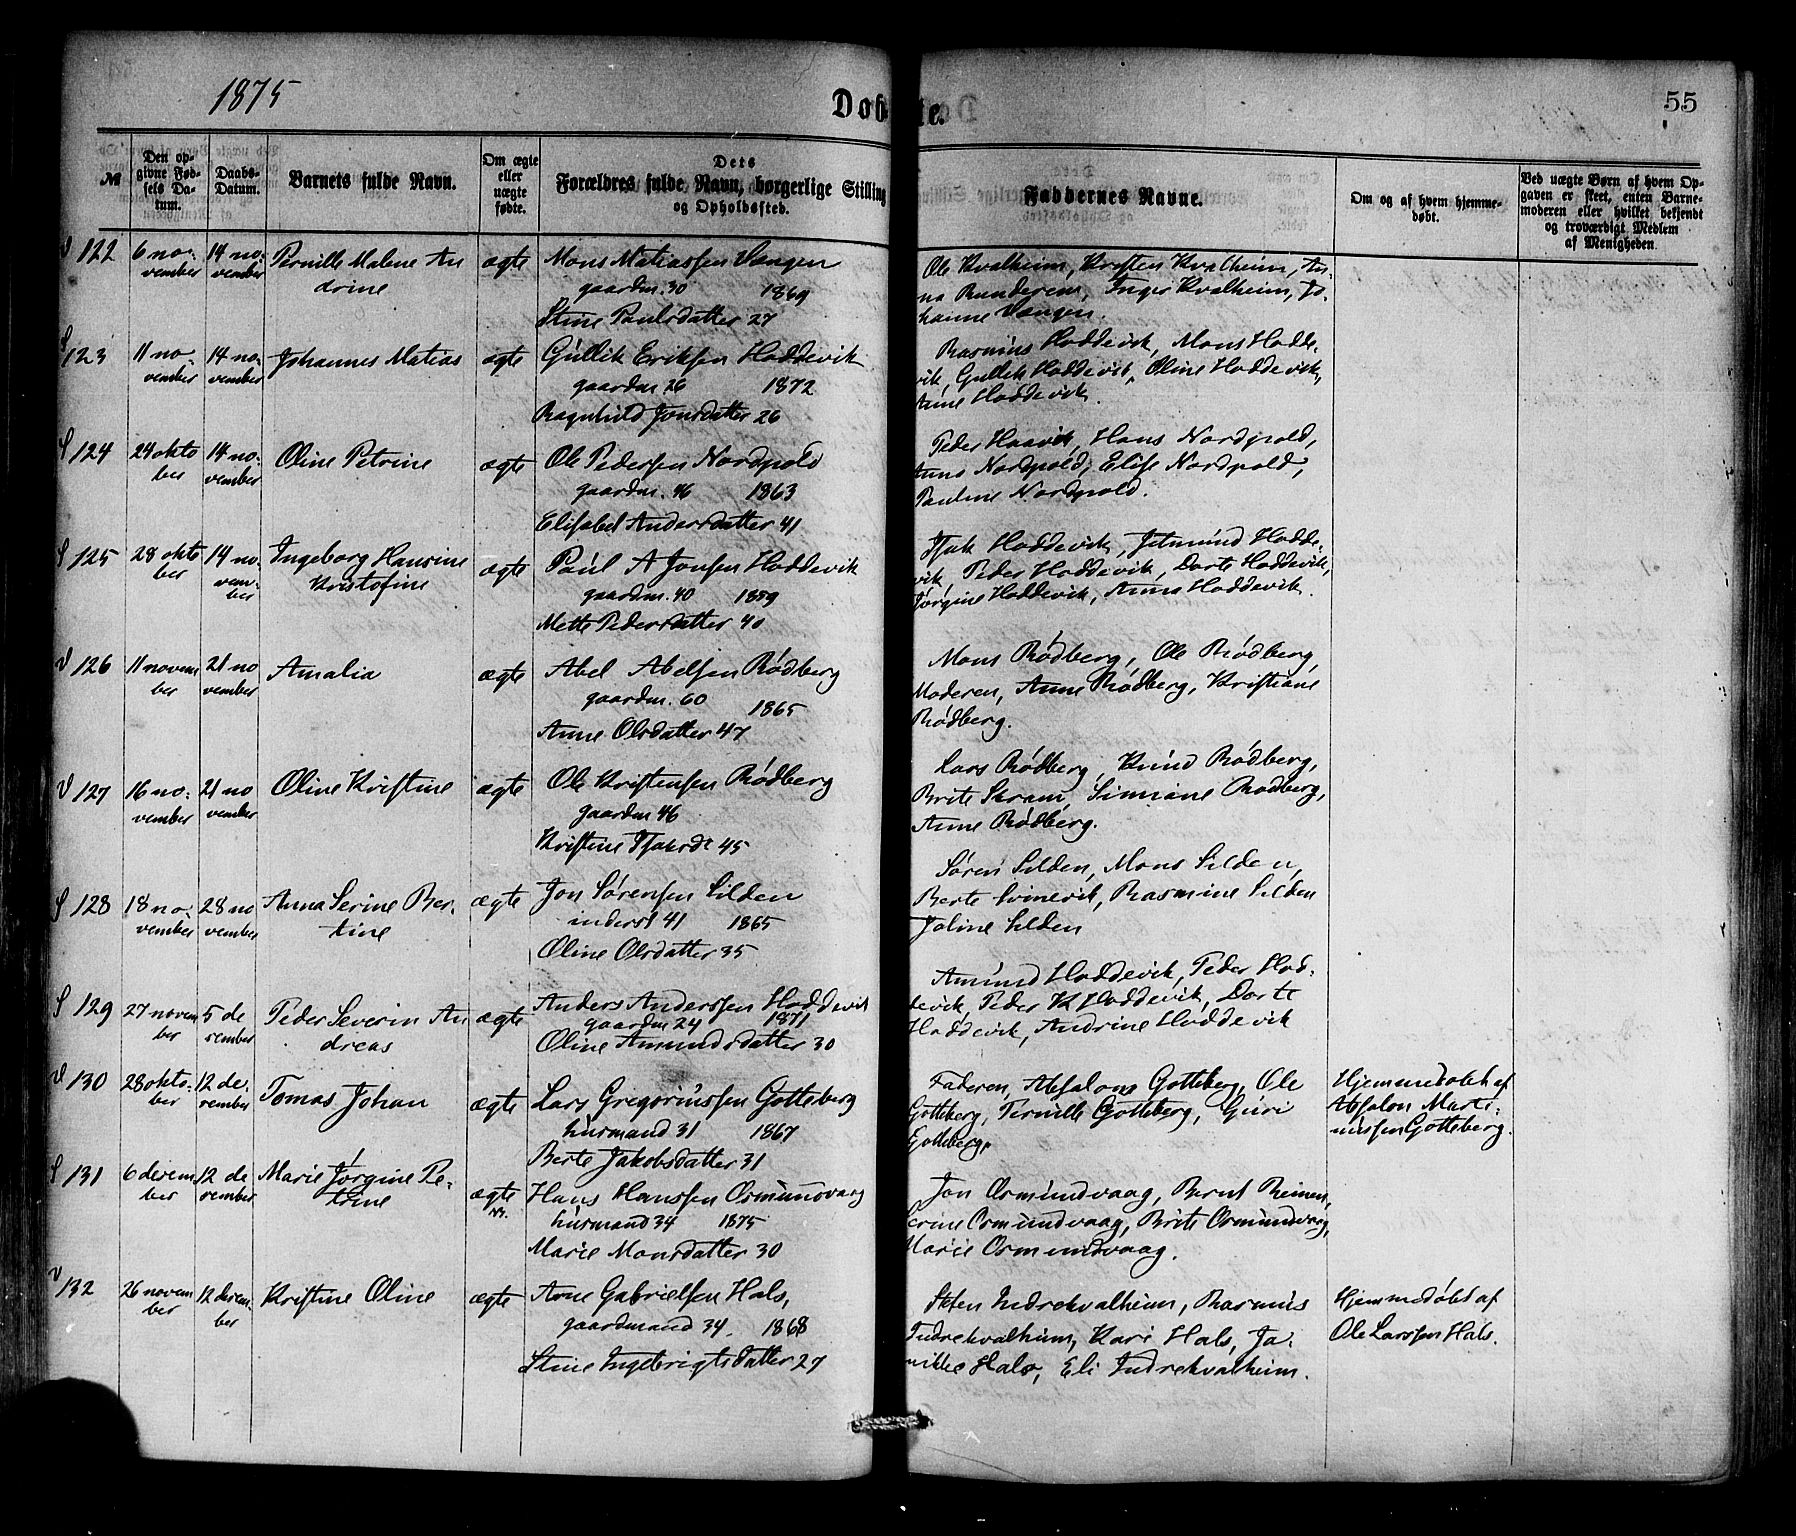 1875
Døbte.
55
№
Den op-
givne Fød-
sels Da-
tum.
Daabs-
Datum.
Barnets fulde Navn.
Om ægte
eller
uægte
fødte.
Dets
Forældres fulde Navn, borgerlige Stilling
og Opholdssted.
Faddernes Navne.
Om og af hvem hjemme-
døbt.
Ved uægte Børn af hvem Op-
gaven er skeet, enten Barne-
moderen eller hvilket bekjendt
og troværdigt Medlem
af Menigheden.
V 122 6 no- 14 no- Pernille Malene An ægte Mons Matiassen Vangen
vember vember drine gaardm. 30 1869
Stine Paulsdatter 27
Ole Kvalheim, Kristen Kvalheim, An-
na Runderem, Inger Kvalheim, Jo-
hanne Vangen.
S 123 11 no- 14 no- Johannes Matias ægte Gullik Eriksen Hoddevik
vember vember gaardm 26 1872
Ragnhild Jonsdatter 26
Rasmus Hoddevik, Mons Hodde-
vik, Gullik Hoddevik, Oline Hoddevik,
Anne Hoddevik.
S 124 24 okto 14 no- Oline Petrine ægte Ole Pedersen Nordpold
ber vember gaardm. 46 1863
Elisabet Andersdatter 41
Peder Haavik, Hans Nordpold,
Anne Nordpold, Elise Nordpold,
Pauline Nordpold.
S 125 28 okto 14 no- Ingeborg Hansine ægte Paul A Jonsen Hoddevik
ber vem- Kristofine gaardm. 40 1859
ber Mette Pedersdatter 40
Isak Hoddevik, Jetmund Hodde-
vik, Peder Hoddevik, Dorte Hoddevik,
Jørgine Hoddevik, Anna Hoddevik.
V 126 11 novem 21 no Amalia ægte Abel Abelsen Rødberg
ber vember gaardm. 60 1865
Anne Olsdatter 47
Mons Rødberg, Ole Rødberg,
Moderen, Anne Rødberg, Kristiane
Rødberg.
V 127 16 no- 21 no Oline Kristine ægte Ole Kristensen Rødberg
vember vember gaardm 46
Kristine Isaksdr 45
Lars Rødberg, Knud Rødberg,
Brite Skram, Simiane Rødberg,
Anne Rødberg.
S 128 18 no- 28 no Anna Serine Ber- ægte Jon Sørensen Silden
vember vember tine inderst 41 1865
Oline Olsdatter 35
Søren Silden, Mons Silden,
Berte Svinevik, Rasmine Silden
Joline Silden
S 129 27 novem 5 de Peder Severin An ægte Anders Anderssen Hoddevik
ber sember dreas gaardm 24 1871
Oline Amundsdatter 30
Amund Hoddevik, Peder Hod-
devik, Peder K Hoddevik, Dorte
Hoddevik, Andrine Hoddevik
V 130 28 okto- 12 de- Tomas Johan ægte Lars Gregoriussen Gotteberg
ber sember husmand 31 1867
Berte Jakobsdatter 31
Faderen, Absalon Gotteberg, Ole
Gotteberg, Pernille Gotteberg, Guri
Gotteberg.
Hjemmedøbt af
Absalon Marti-
nussen Gotteberg.
S 131 6 desem 12 de Marie Jørgine Pe- ægte Hans Hanssen Osmundvaag
ber sember trine husmand 34 1875
Marie Monsdatter 30
Jon Osmundvaag, Bernt Reimen,
Serine Osmundvaag, Brite Osmundvaag,
Marie Osmundvaag.
V 132 26 novem 12 desem- Kristine Oline ægte Arne Gabrielsen Hals,
ber ber gaardmand 34. 1868
Stine Ingebrigtsdatter 27
Stefen Indrekvalheim, Rasmus
Indrekvalheim, Kari Hals, Ja-
nikke Hals, Eli Indrekvalheim.
Hjemmedøbt af
Ole Larssen Hals.